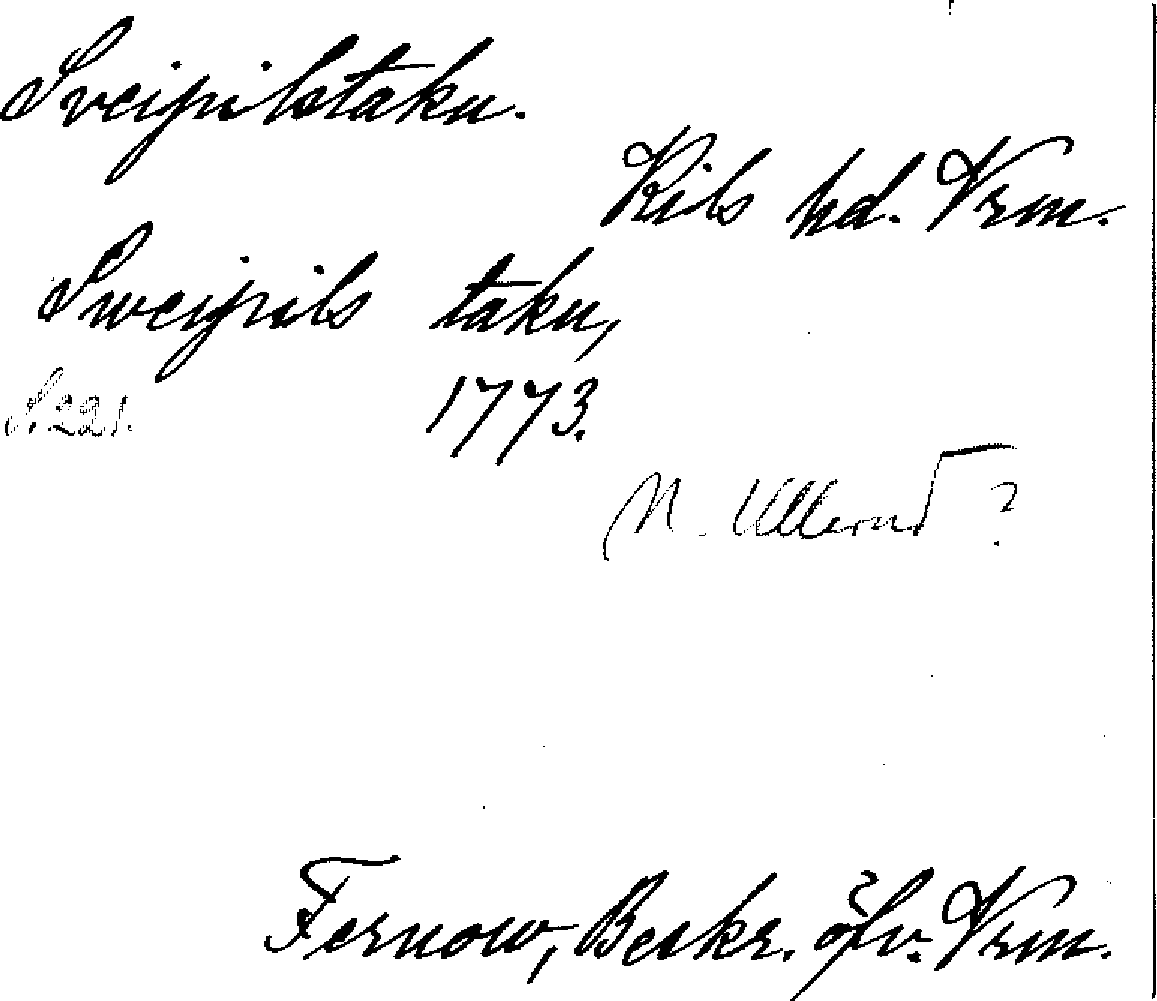 Sveipilstaku.
Kils hd. Vrm.
Sweipils taku,
S. 221. 1773.
N. Ullerud ?
Fernow, Beskr. öfv. Vrm.